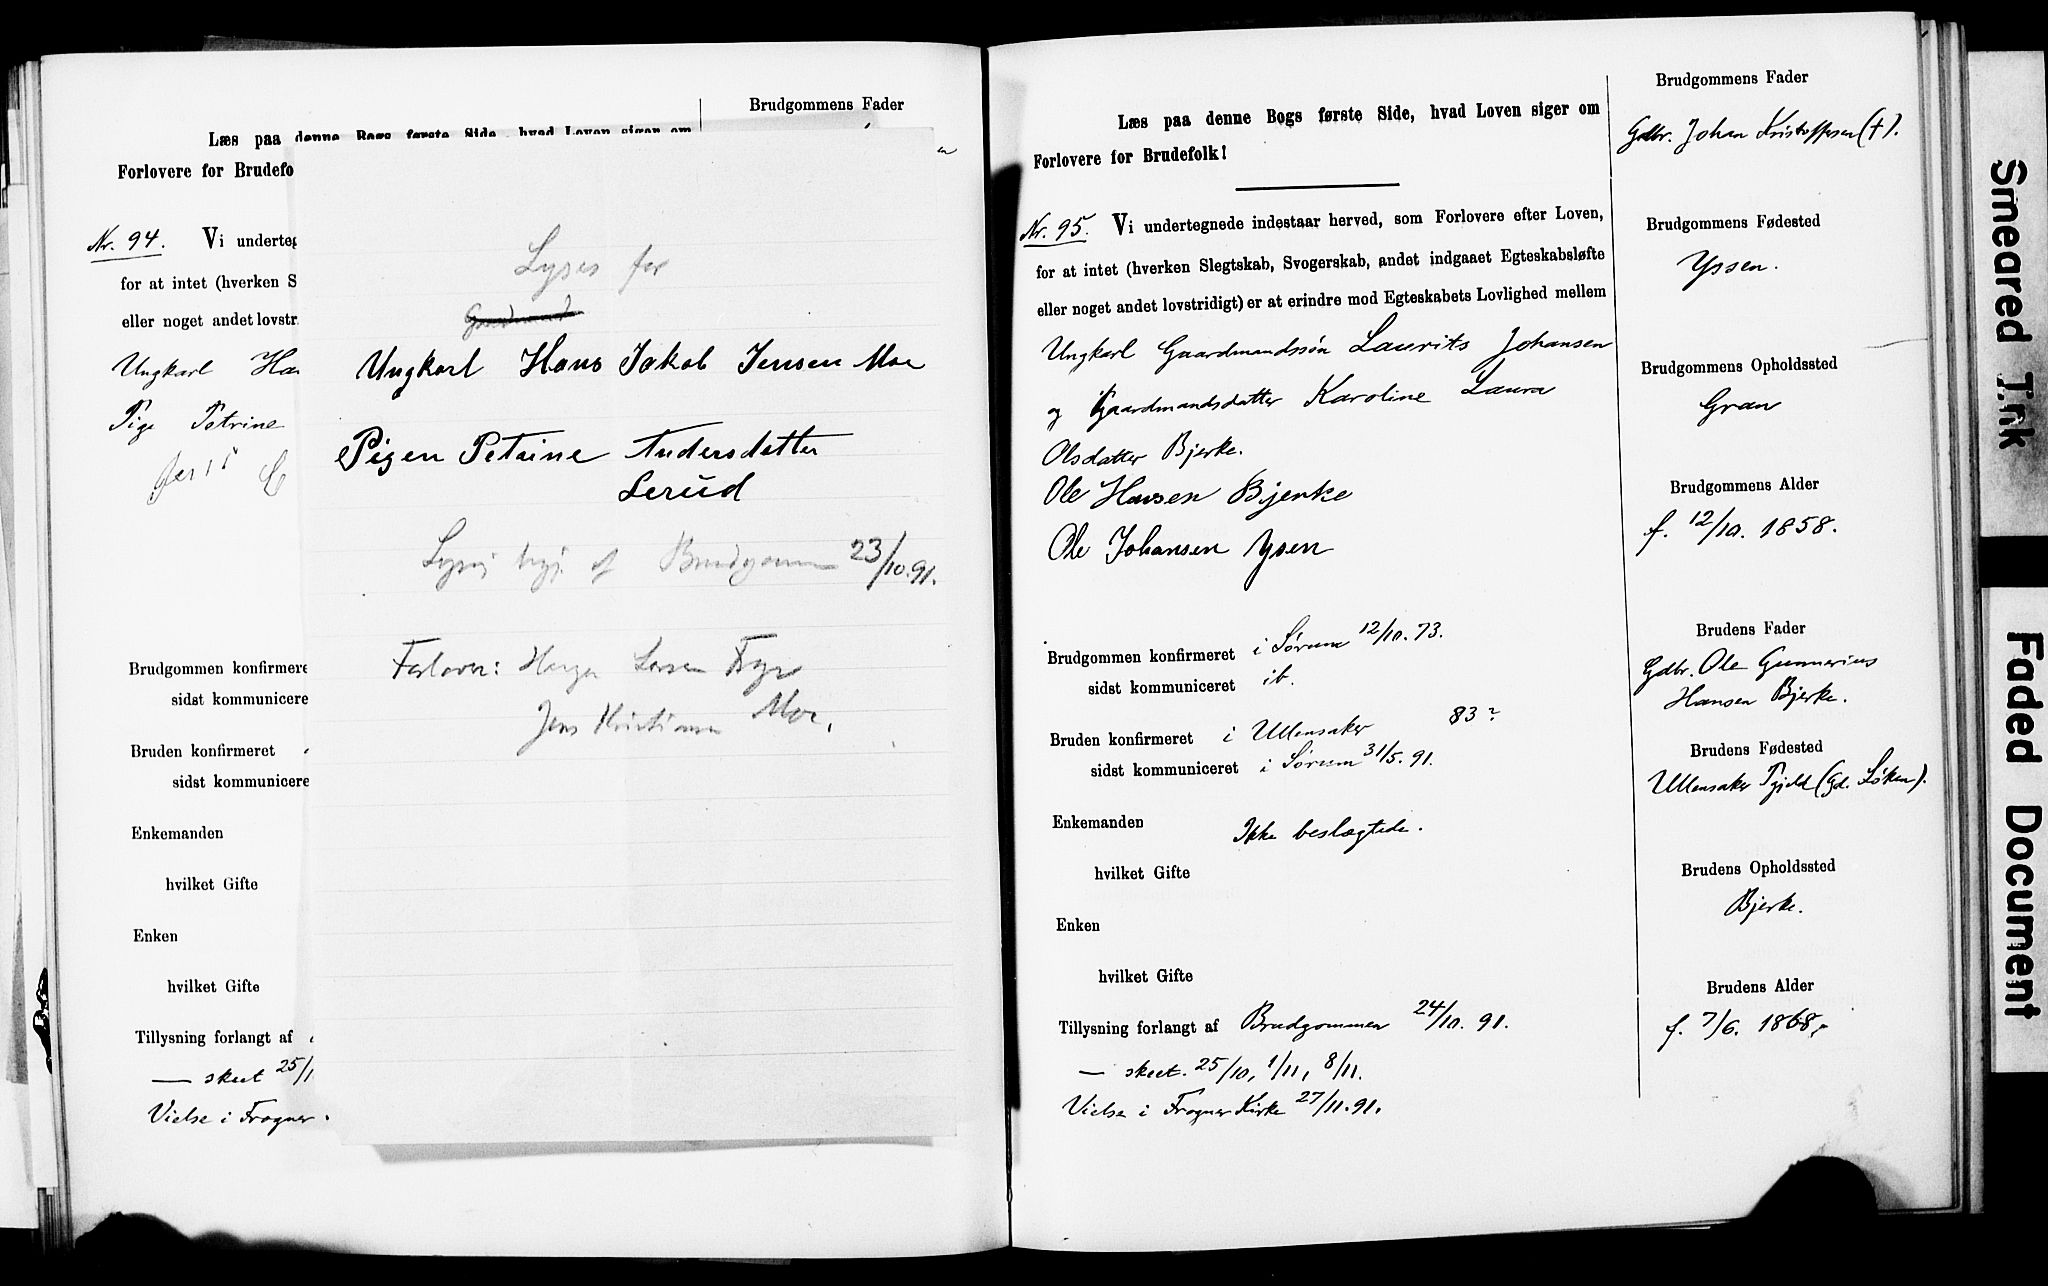 Brudgommens Fader
Læs paa denne Bogs første Side, hvad Loven siger om
Forlovere for Brudefo
Nr. 94. Vi underteg
for at intet (hverken S
eller noget andet lovstr
Ungkarl Ha
Pige Petrine
Brudgommen konfirmere
sidst kommunicere
Bruden konfirmeret
sidst kommunicere
Enkemanden
hvilket Gifte
Enken
hvilket Gifte
Tillysning forlangt af
— skeet 25/1
Vielse i Frogner
Lyses for
Gaardmand
Ungkarl Hans Jakob Jensen Moe
Pigen Petrine Andersdatter
Lerud
Lysn. af Brudgommen 23/10. 91.
Forlover: Larsen
Jens Kristiansen Moe.
Læs paa denne Bogs første Side, hvad Loven siger om
Forlovere for Brudefolk!
Nr. 95. Vi undertegnede indestaar herved, som Forlovere efter Loven,
for at intet (hverken Slegtskab, Svogerskab, andet indgaaet Egteskabsløfte
eller noget andet lovstridigt) er at erindre mod Egteskabets Lovlighed mellem
Ungkarl Gaardmandssøn Laurits Johansen
og Gaardmandsdatter Karoline Laura
Olsdatter Bjerke.
Ole Hansen Bjerke
Ole Johansen Ysen
Brudgommen konfirmeret i Sørum 12/10. 73.
sidst kommuniceret ib.
Bruden konfirmeret i Ullensaker 83?
sidst kommuniceret i Sørum 31/5. 91.
Enkemanden Ikke beslægtede.
hvilket Gifte
Enken
hvilket Gifte
Tillysning forlangt af Brudgommen 24/10. 91.
— skeet. 25/10, 1/11, 8/11.
Vielse i Frogner Kirke 27/11. 91.
Brudgommens Fader
Gdbr. Johan Kristoffersen (†).
Brudgommens Fødested
Yssen.
Brudgommens Opholdssted
Gran
Brudgommens Alder
f. 12/10. 1858.
Brudens Fader
Gdbr. Ole Gunnerius
Hansen Bjerke.
Brudens Fødested
Ullensaker Pgjeld (Gd. Løken).
Brudens Opholdssted
Bjerke.
Brudens Alder
f. 7/6. 1868.
Smeared Ink
Faded Document